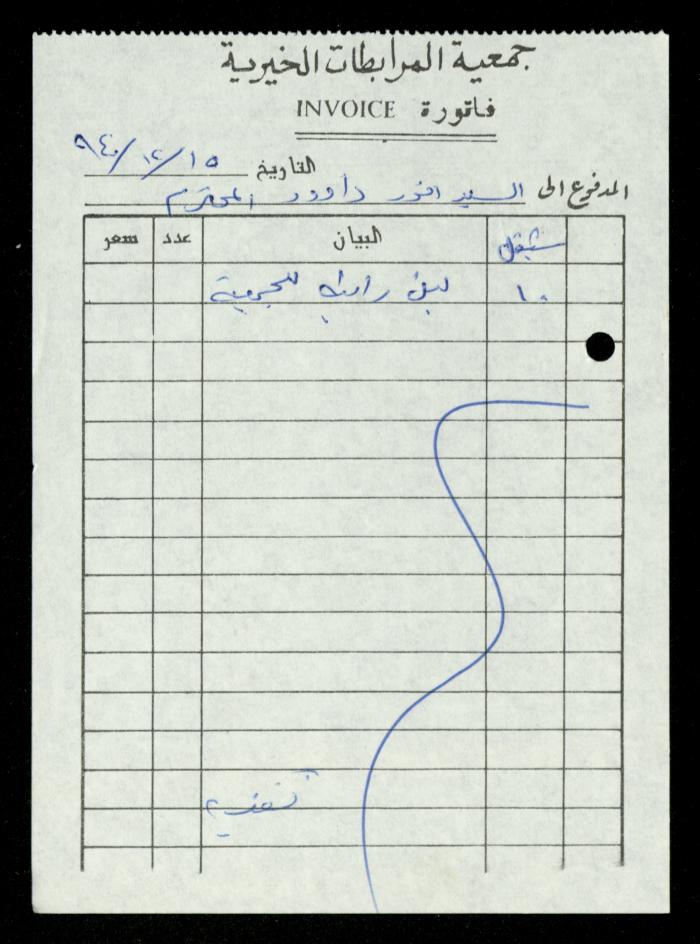 جمعية المرابطات الخيرية
فاتورة INVOICE
التاريخ ١٥/١٢/٩٤
المدفوع الى السيد انور داوود المحترم
شيقل البيان عدد سعر
١٠ للجمعية